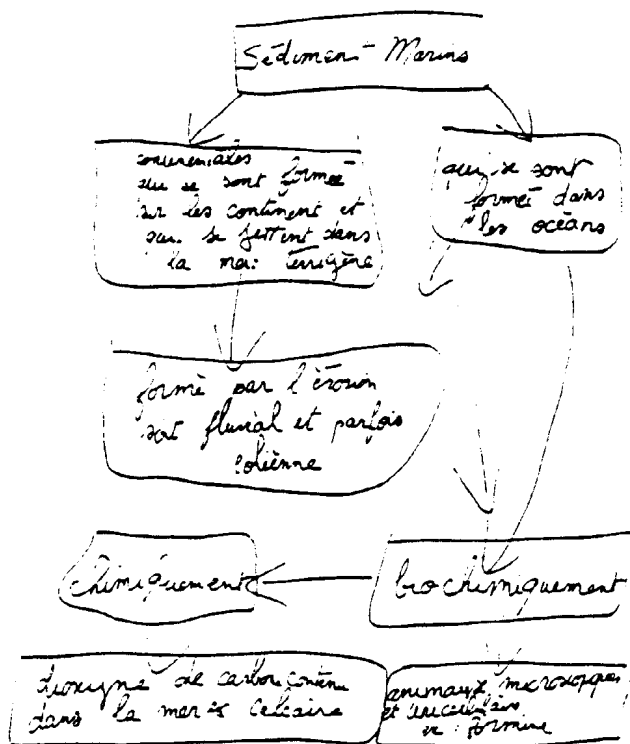 Sédiment Marins
continentales
qui se sont formée
sur les continent et
qui se jettent dans
la mer: terrigène
qui se sont
formét dans
les océans
formé par l'érosion
soit fluvial et parfois
éolienne
chimiquement
biochimiquement
de carbone contenu
dans la mer Calcaire
animaux microscopiques
et